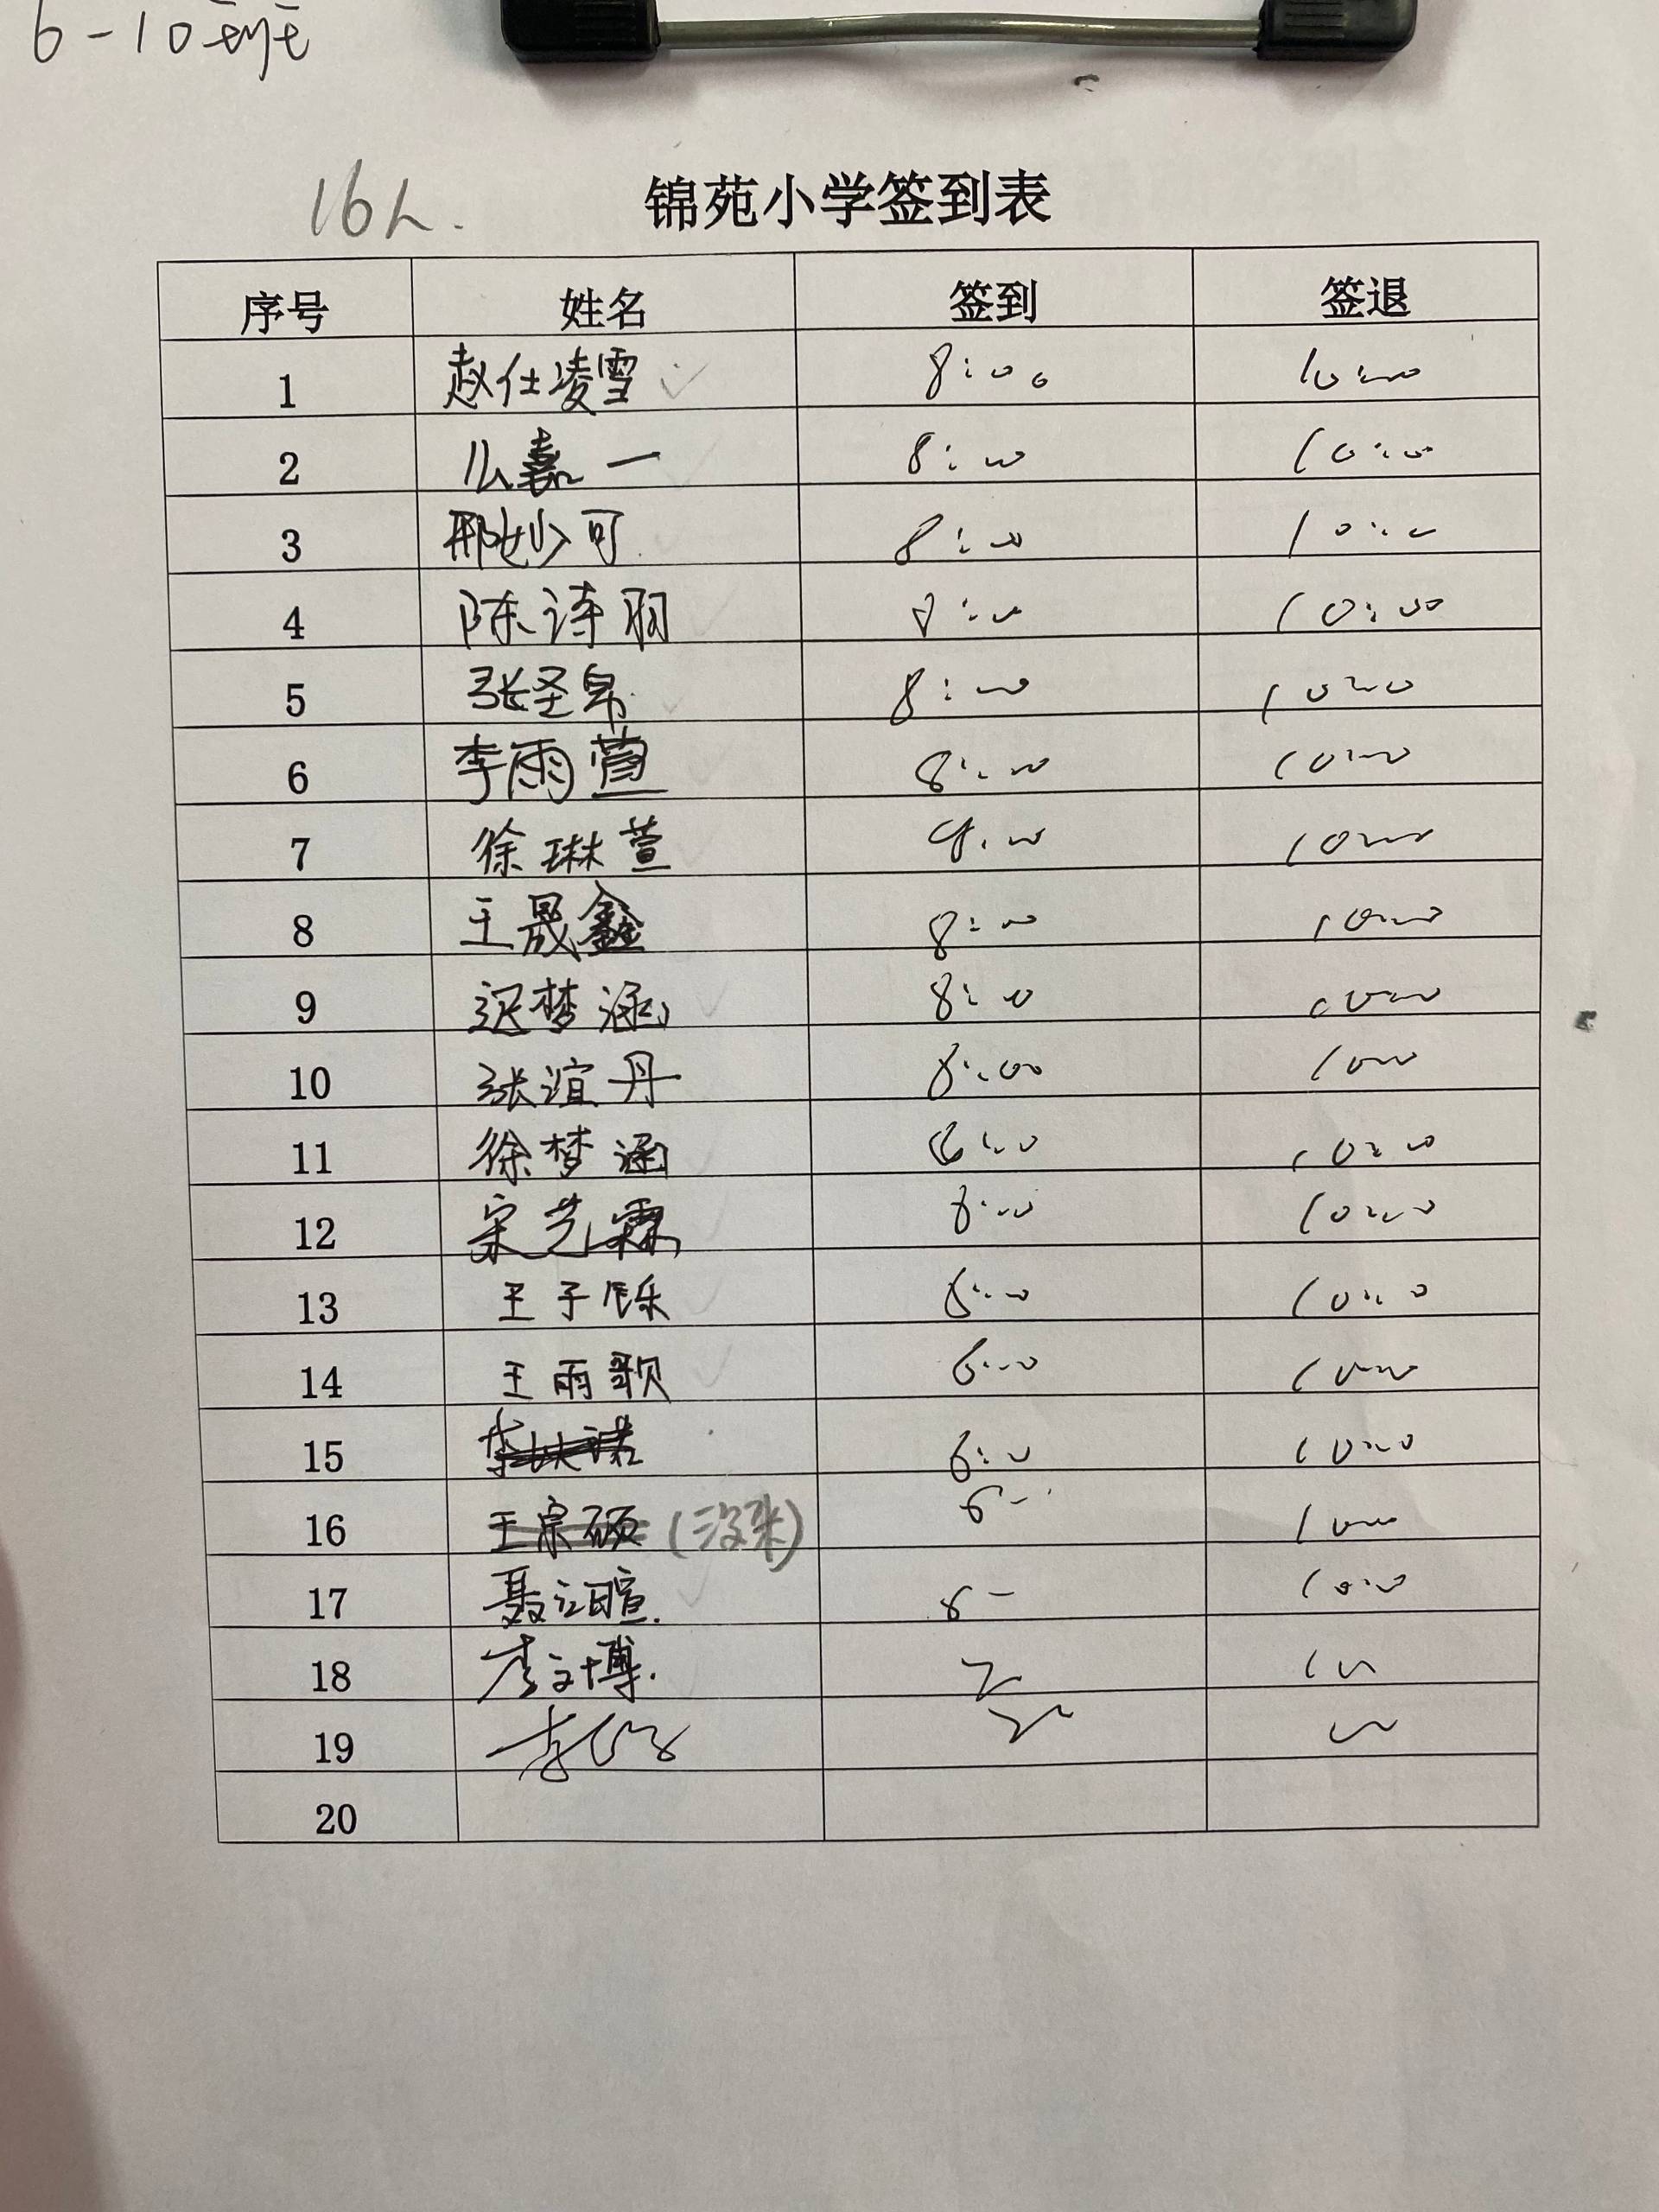 6-10班
16人.
锦苑小学签到表
序号 姓名 签到 签退
1 赵仕凌雪 8:00 10:00
2 么嘉一 8:00 10:00
3 邢妙可 8:00 10:00
4 陈诗羽 8:00 10:00
5 张圣帛 8:00 10:00
6 李雨萱 8:00 10:00
7 徐琳萱 8:00 10:00
8 王晟鑫 8:00 10:00
9 迟梦涵 8:00 10:00
10 张谊丹 8:00 10:00
11 徐梦涵 8:00 10:00
12 宋艺霖 8:00 10:00
13 王子铄 8:00 10:00
14 王雨歌 8:00 10:00
15 8:00 10:00
16 王宗硕 (没来) 8- 10:00
17 聂汩暄. 8- 10:00
18 李文博.
19
20